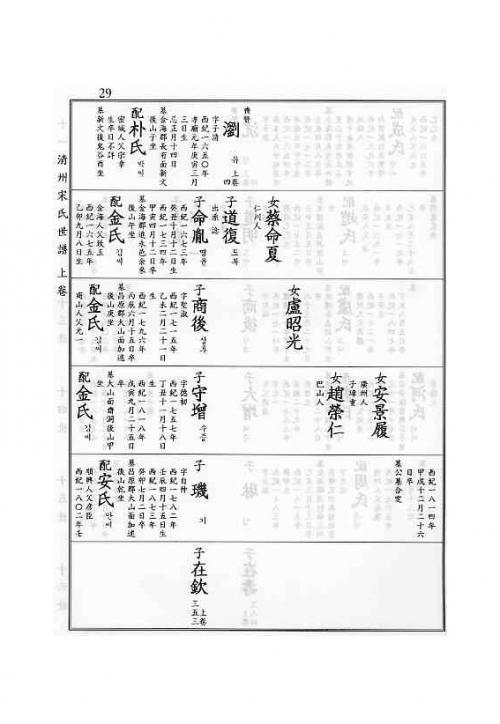 29
清州宋氏世譜 上卷
齊賢
瀏 유 上卷 四
字子清
西紀一六五〇年
孝廟元年庚寅三月
三日生
忌正月十四日
墓金海郡長有面新文
後山子坐
配朴氏 박씨
密城人父宗幸
生卒日不詳
墓新文後鬼谷酉坐
女蔡命夏
仁川人
子道復 도복
出系 淰
子命胤 명윤
西紀一六七三年
癸丑十月十二日生
西紀一七三四年
甲寅四月十二日卒
墓金海郡進永邑余來
後山午坐
配金氏 김씨
金海人父致玉
西紀一六七五年
乙卯九月八日生
女盧昭光
子商後 상후
字聖猷
西紀一七一五年
乙未二月二十一日
生
西紀一七九六年
丙辰六月十五日卒
墓昌原郡大山面加述
後山庚坐
配金氏 김씨
商山人父光一
女安景履
廣州人
子璋重
女趙榮仁
巴山人
子守增 수증
字德初
西紀一七五七年
丁丑十一月十八日
生
西紀一八一八年
戊寅九月二十五日
卒
墓大山面齋洞後山甲
坐
配金氏 김씨
西紀一八一四年
甲戌十二月二十六
日卒
墓公墓合窆
子璣 기
字自仲
西紀一七八二年
壬寅四月十五日生
西紀一八七三年
癸卯七月二日卒
墓昌原郡大山面加述
後山乾坐
配安氏 안씨
順興人父彦臣
西紀一八〇二年壬
子在欽 上卷 三五三